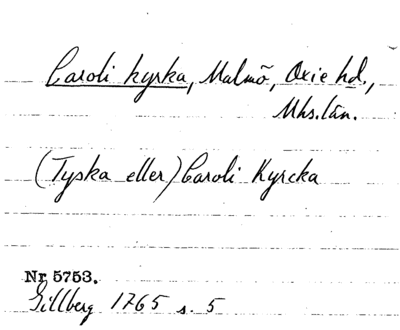 Caroli kyrka, Malmö, Oxie hd.,
Mhs.län.
(Tyska eller) Caroli Kyrcka
Nr 5753.
Gillberg 1765 s. 5